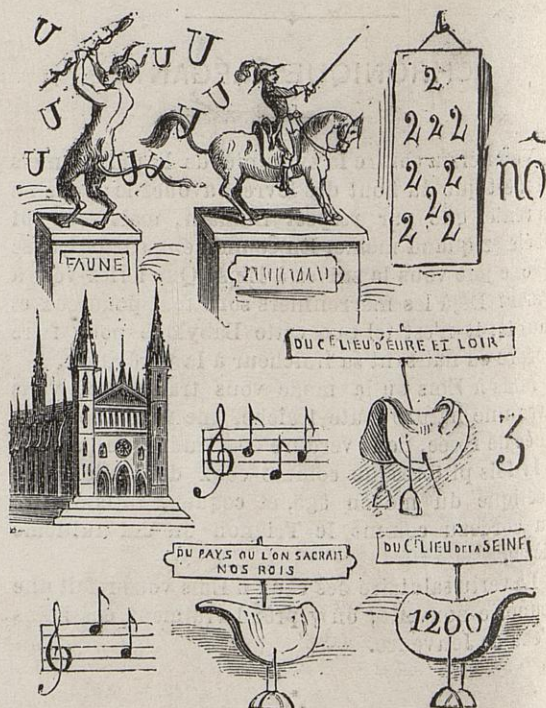 U U U U U U U U
2
2 2 2
2 2
2
2 2
nô
FAUNE
DU CE LIEU D'EURE ET LOIR
3
DU PAYS OU L'ON SACRAIT
NOS ROIS
DU CT LIEU DE LA SEINE
1200